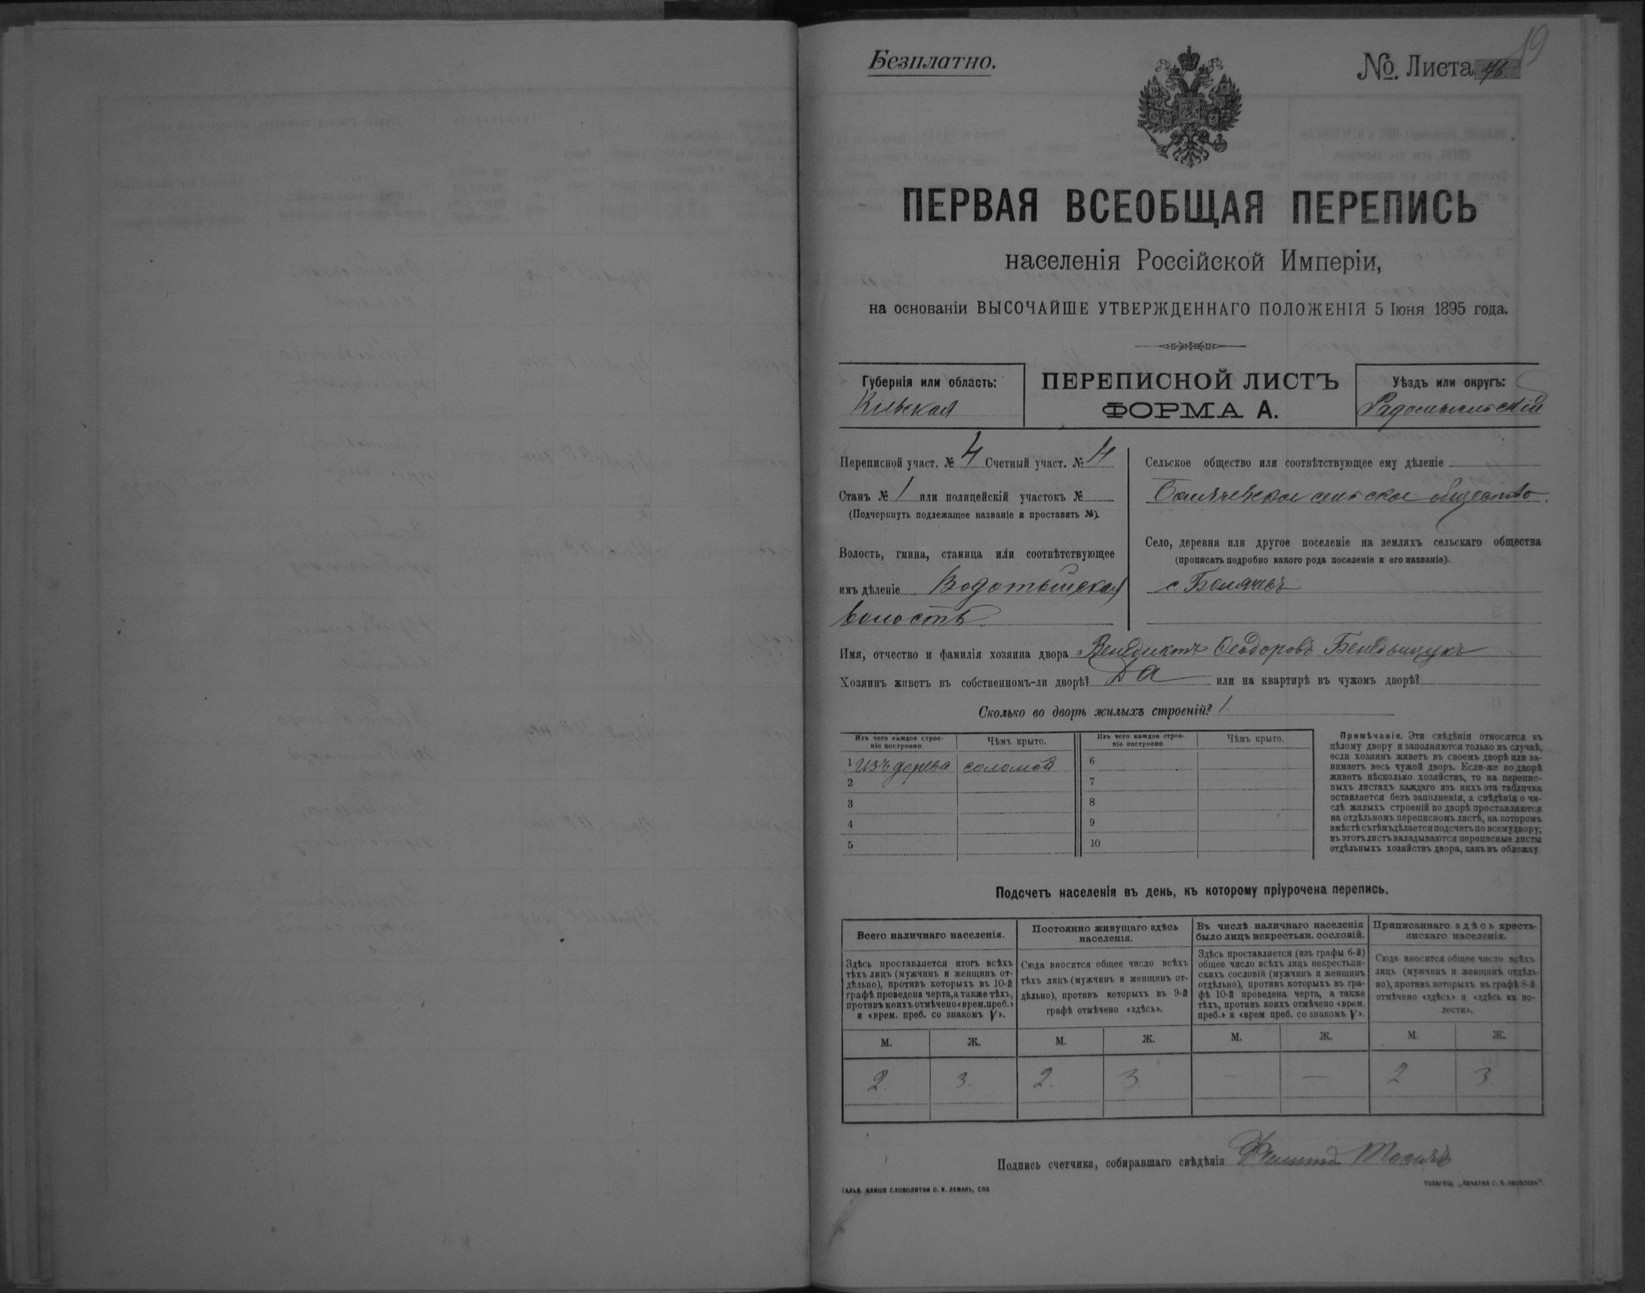 Безплатно.
№. Листа
19
ПЕРВАЯ ВСЕОБЩАЯ ПЕРЕПИСЬ
населенія Россійской Имперіи,
на основаніи ВЫСОЧАЙШЕ УТВЕРЖДЕННАГО ПОЛОЖЕНІЯ 5 Іюня 1895 года.
Губернія или область:
Кіевская
ПЕРЕПИСНОЙ ЛИСТЪ
ФОРМА А.
Уѣздъ или округъ:
Радомысльскій
Переписной участ. № 4 Счетный участ. № 4
Станъ № 1 или полицейскій участокъ №
(Подчеркнуть подлежащее названіе и проставить №).
Волость, гмина, станица или соотвѣтствующее
имъ дѣленіе Водотыйская
волость.
Сельское общество или соотвѣтствующее ему дѣленіе
сельское общество.
Село, деревня или другое поселеніе на земляхъ сельскаго общества
(прописать подробно какого рода поселеніе и его названіе).
с.
Имя, отчество и фамилія хозяина двора Венедиктъ Феодоровъ
Хозяинъ живетъ въ собственномъ-ли дворѣ? Да или на квартирѣ въ чужомъ дворѣ?
Сколько во дворѣ жилыхъ строеній? 1
Изъ чего каждое строе-
ніе построено
Чѣмъ крыто.
Изъ чего каждое строе-
ніе построено
Чѣмъ крыто.
1 изъ дерева соломой
2
3
4
5
6
7
8
9
10
Примѣчаніе. Эти свѣдѣнія относятся къ
цѣлому двору и заполняются только въ случаѣ,
если хозяинъ живетъ въ своемъ дворѣ или за-
нимаетъ весь чужой дворъ. Если-же во дворѣ
живетъ нѣсколько хозяйствъ, то на перепис-
ныхъ листахъ каждаго изъ нихъ эта табличка
оставляется безъ заполненія, а свѣдѣнія о чи-
слѣ жилыхъ строеній во дворѣ проставляются
на отдѣльномъ переписномъ листѣ, на которомъ
вмѣстѣ съ тѣмъ дѣлается подсчетъ по всему двору;
въ этотъ листъ вкладываются переписные листы
отдѣльныхъ хозяйствъ двора, какъ въ обложку.
Подсчетъ населенія въ день, къ которому пріурочена перепись.
Всего наличнаго населенія.
Здѣсь проставляется итогъ всѣхъ
тѣхъ лицъ (мужчинъ и женщинъ от-
дѣльно), противъ которыхъ въ 10-й
графѣ проведена черта, а также тѣхъ,
противъ коихъ отмѣчено «врем. преб.»
и «врем. преб. со знакомъ V».
Постоянно живущаго здѣсь
населенія.
Сюда вносится общее число всѣхъ
тѣхъ лицъ (мужчинъ и женщинъ от-
дѣльно), противъ которыхъ въ 9-й
графѣ отмѣчено «здѣсь».
Въ числѣ наличнаго населенія
было лицъ некрестьян. сословій.
Здѣсь проставляется (изъ графы 6-й)
общее число всѣхъ лицъ некрестьян-
скихъ сословій (мужчинъ и женщинъ
отдѣльно), противъ которыхъ въ гра-
фѣ 10-й проведена черта, а также
тѣхъ, противъ коихъ отмѣчено «врем.
преб.» и «врем преб. со знакомъ V».
Приписаннаго здѣсь кресть-
янскаго населенія.
Сюда вносится общее число всѣхъ
лицъ (мужчинъ и женщинъ отдѣль-
но), противъ которыхъ въ графѣ 8-й
отмѣчено «здѣсь» и «здѣсь въ во-
лости».
М. Ж. М. Ж. М. Ж. М. Ж.
2 3. 2. 3 — — 2 3
Подпись счетчика, собиравшаго свѣдѣнія
ГАЛЬВ. КЛИШЕ СЛОВОЛИТНИ О. И. ЛЕМАНЪ, СПБ
ТОВАРИЩ. „ПЕЧАТНЯ С. П. ЯКОВЛЕВА“